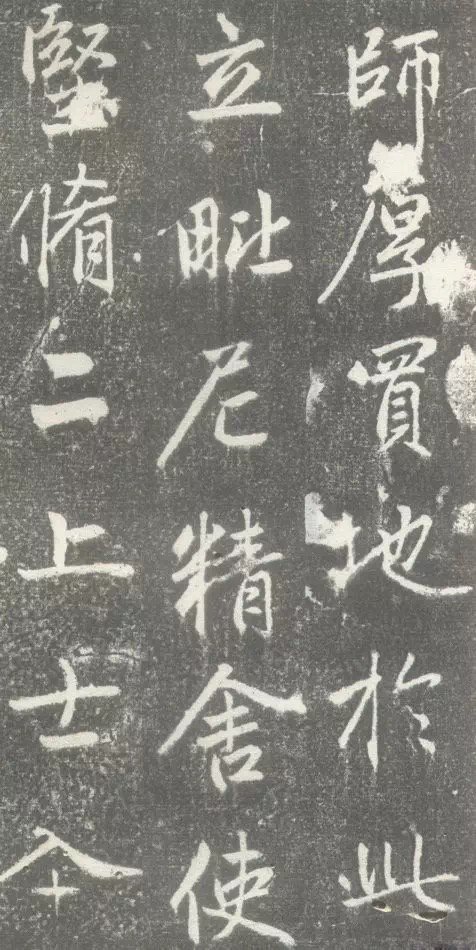 師厚買地於此
立毗尼精舍使
堅脩二上士令